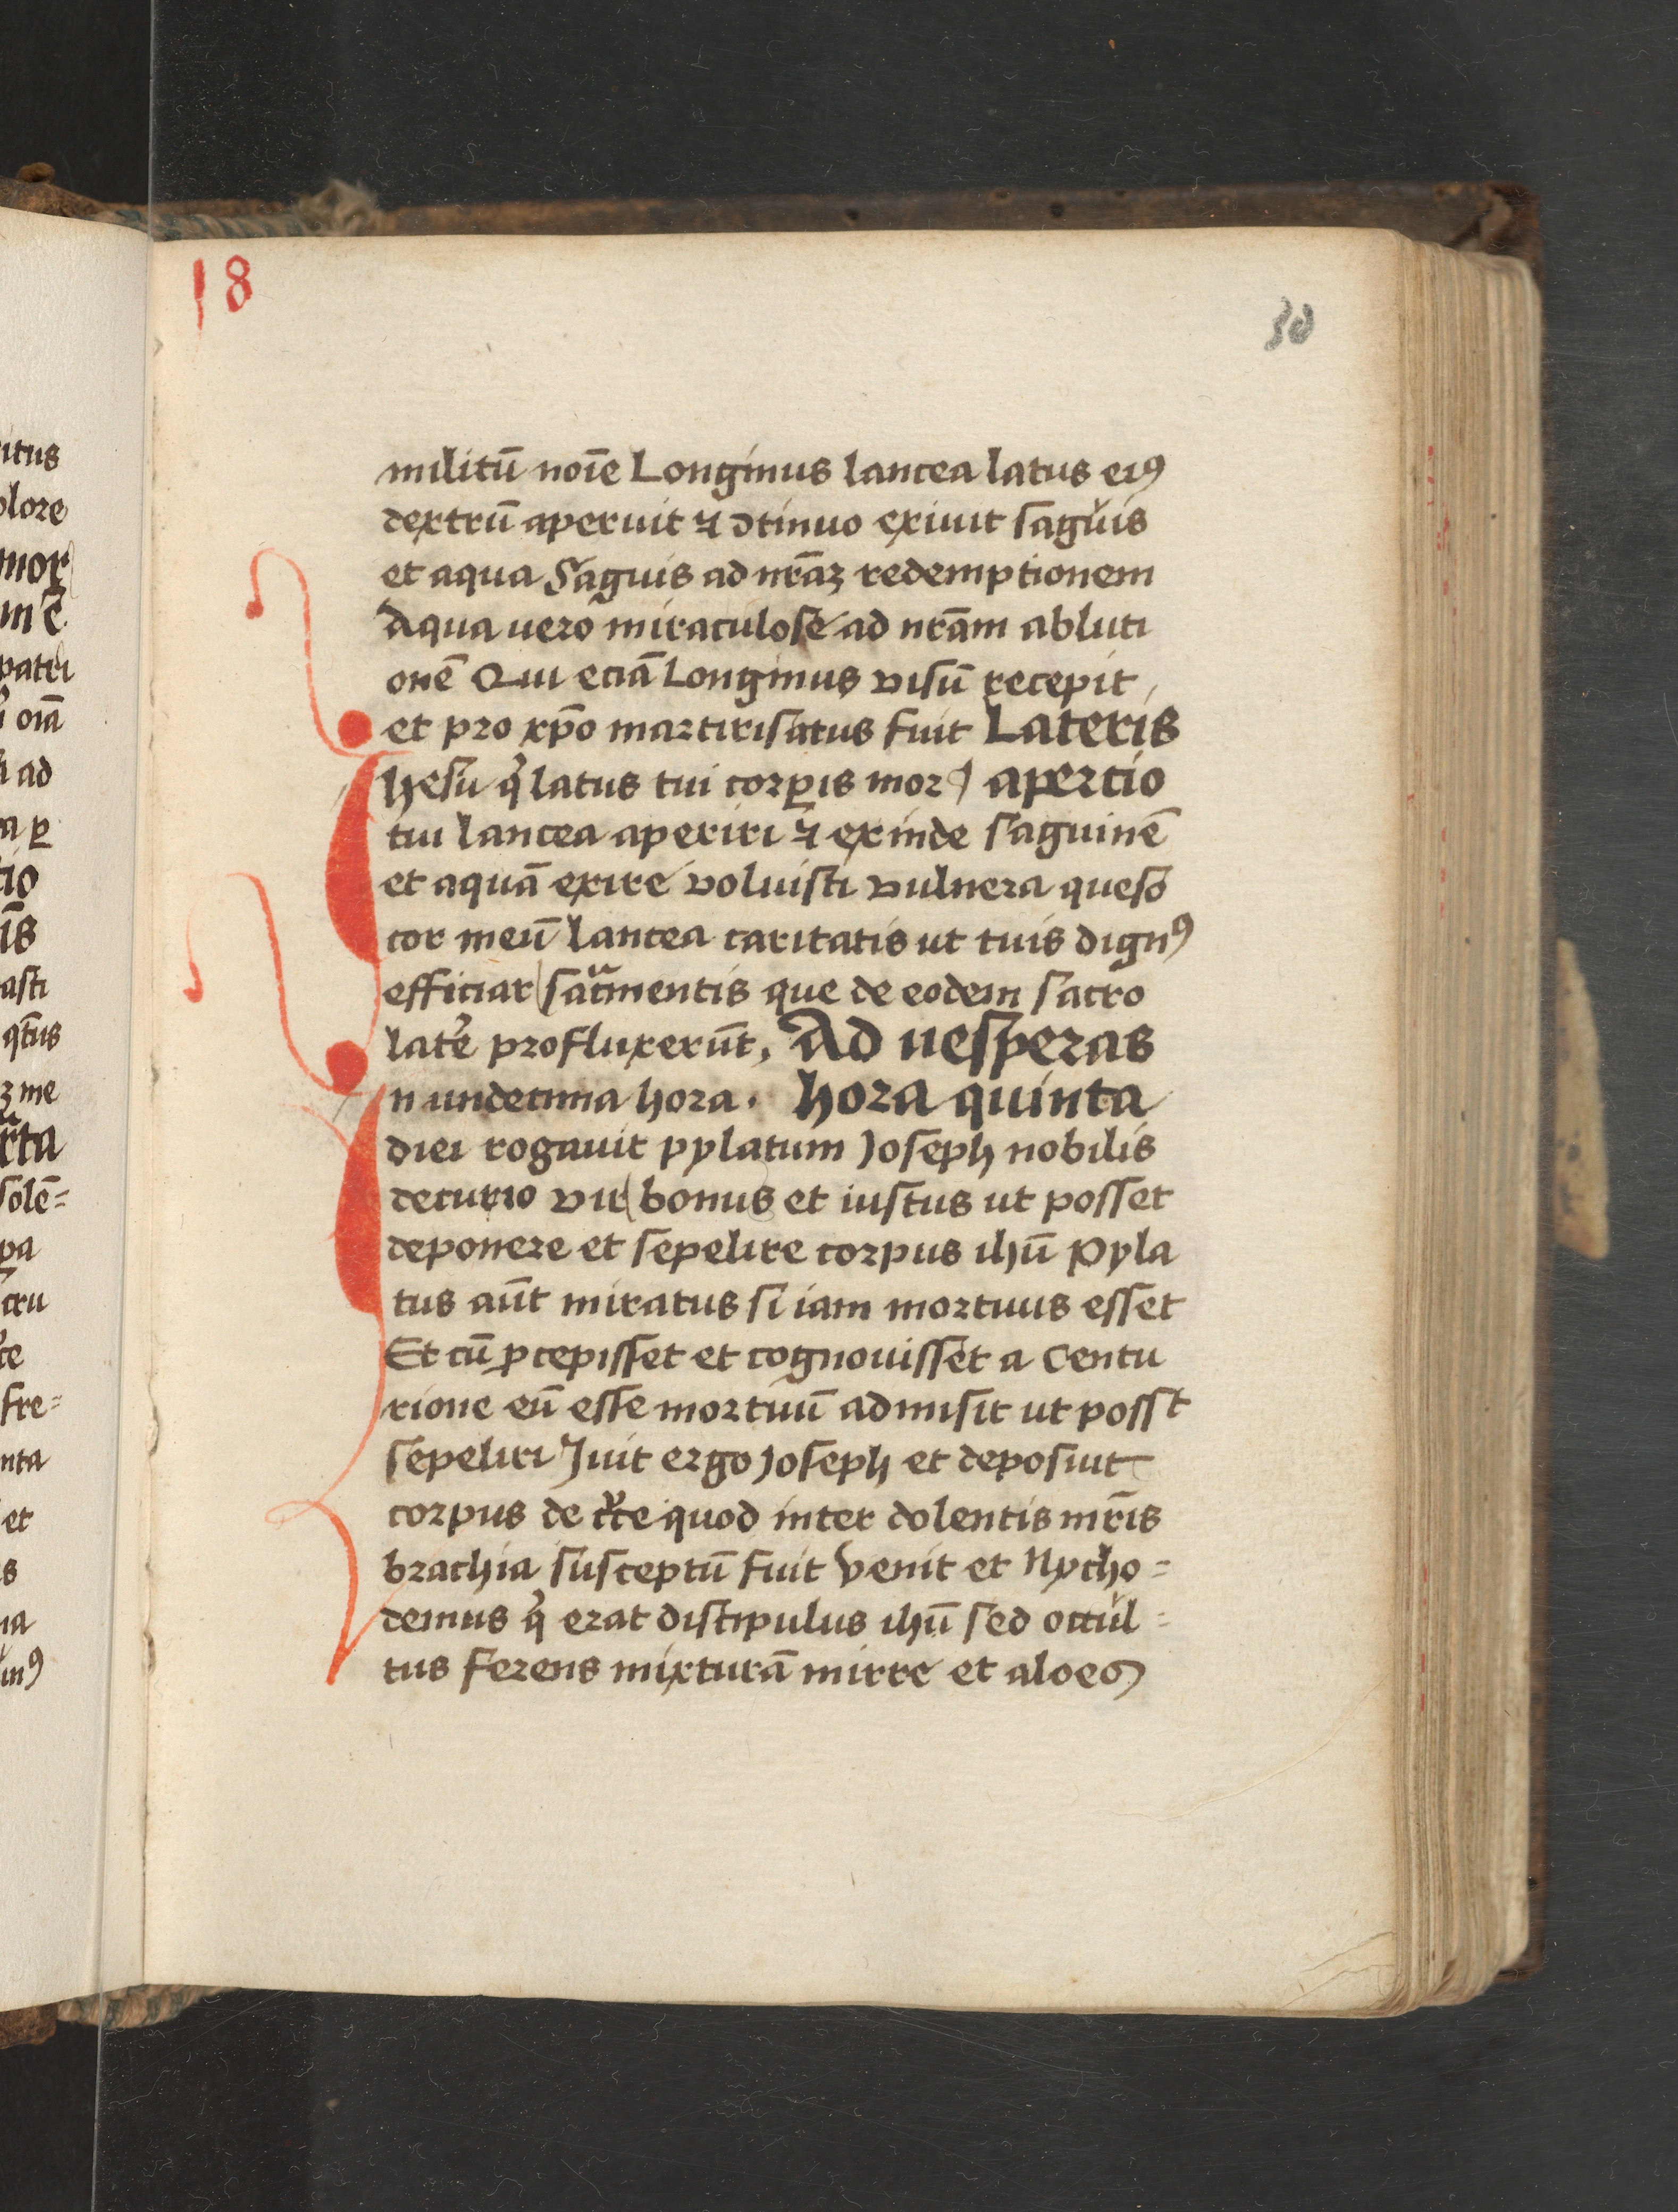 18
30
militū noīe Longinus lancea latus eiꝯ
dextrū aperuit ⁊ ↄtinuo exiuit sāguis
et aqua Sāguis ad nr̄aꝫ redemptionem
Aqua uero miraculose ad nr̄am abluti
onē Qui eciā Longinus visū recepit
et pro xp̄o martirisatus fuit Lateris
Ihesu qͥ latus tui corꝑis mor apercio
tui lancea aperiri ⁊ exinde saguinē
et aquā exire voluisti vulnera queso
cor meū lancea caritatis ut tuis dignꝯ
efficiar sacͣmentis que de eodem sacro
late᷒ profluxerūt, Ad uesperas
In undecima hora. hora quinta
diei rogauit pylatum Joseph nobilis
decurio vir bonus et iustus ut posset
deponere et sepelire corpus ihū Pyla
tus aūt miratus si iam mortuus esset
Et cū ꝑcepisset et cognouisset a Centu
rione eū esse mortuū admisit ut posst
sepeliri Iuit ergo Joseph et deposuit
corpus de cͬce quod inter dolentis mr̄is
brachia susceptū fuit Venit et Nycho=
demus qͥ erat discipulus ihū sed occul=
tus ferens mixturā mirre et aloes